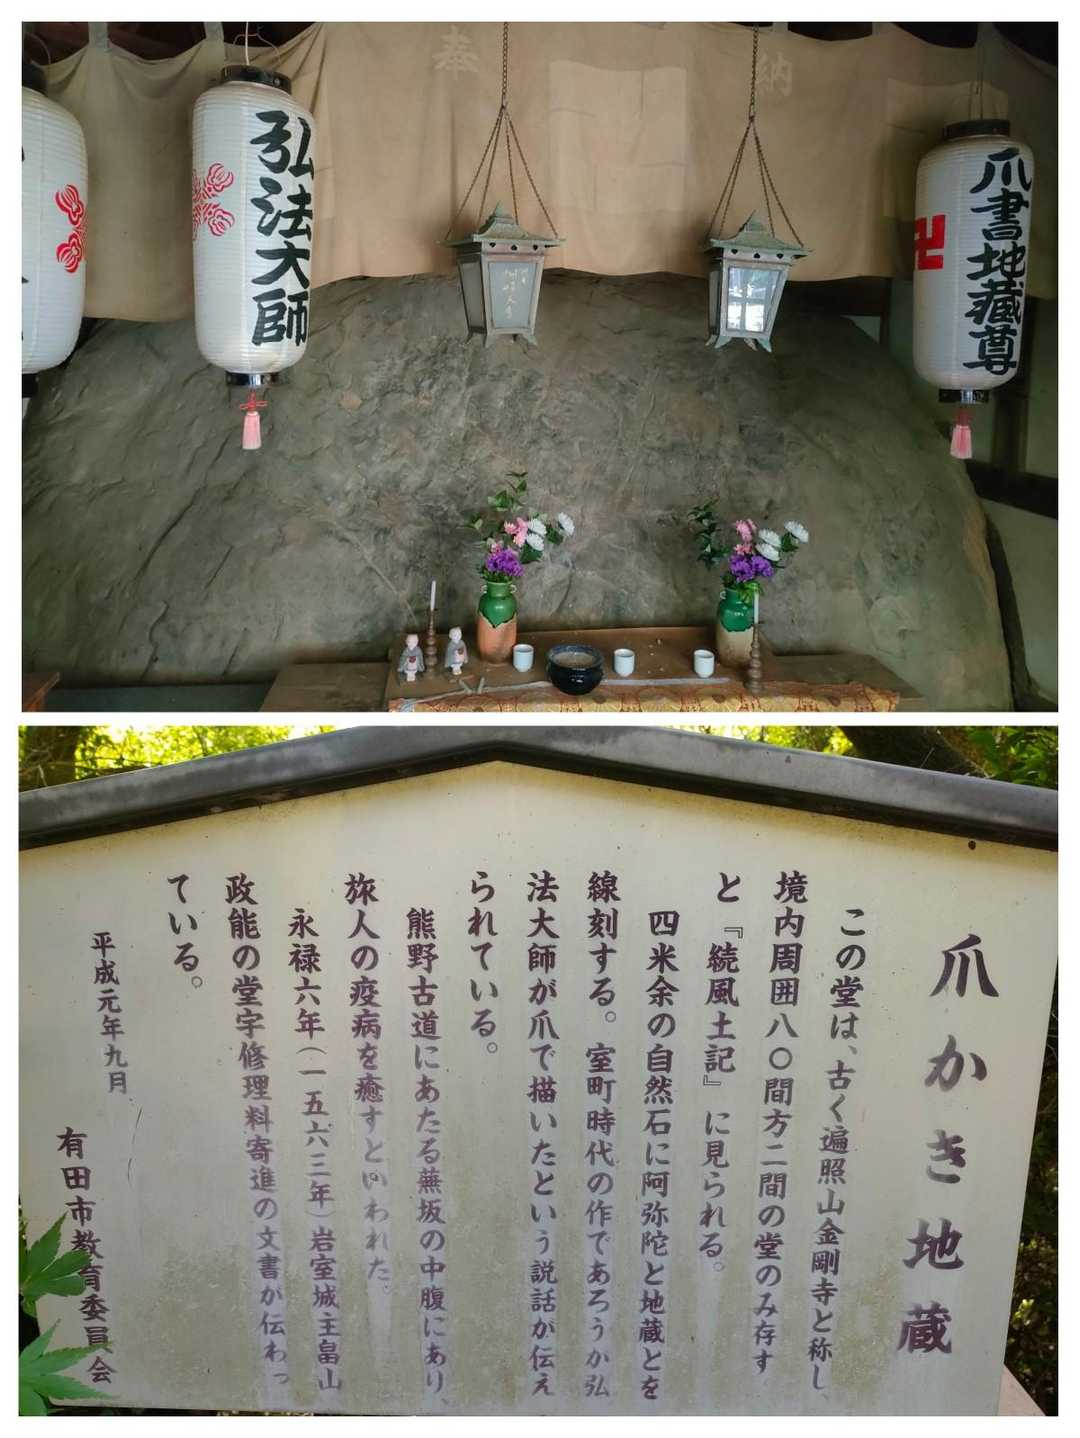 奉納
弘法大師
爪書地蔵尊
爪かき地蔵
この堂は、古く遍照山金剛寺と称し、
境内周囲八〇間方二間の堂のみ存す
と『続風土記』に見られる。
四米余の自然石に阿弥陀と地蔵とを
線刻する。室町時代の作であろうか弘
法大師が爪で描いたという説話が伝え
られている。
熊野古道にあたる蕪坂の中腹にあり、
旅人の疫病を癒すといわれた。
永禄六年(一五六三年)岩室城主畠山
政能の堂宇修理料寄進の文書が伝わっ
ている。
平成元年九月
有田市教育委員会